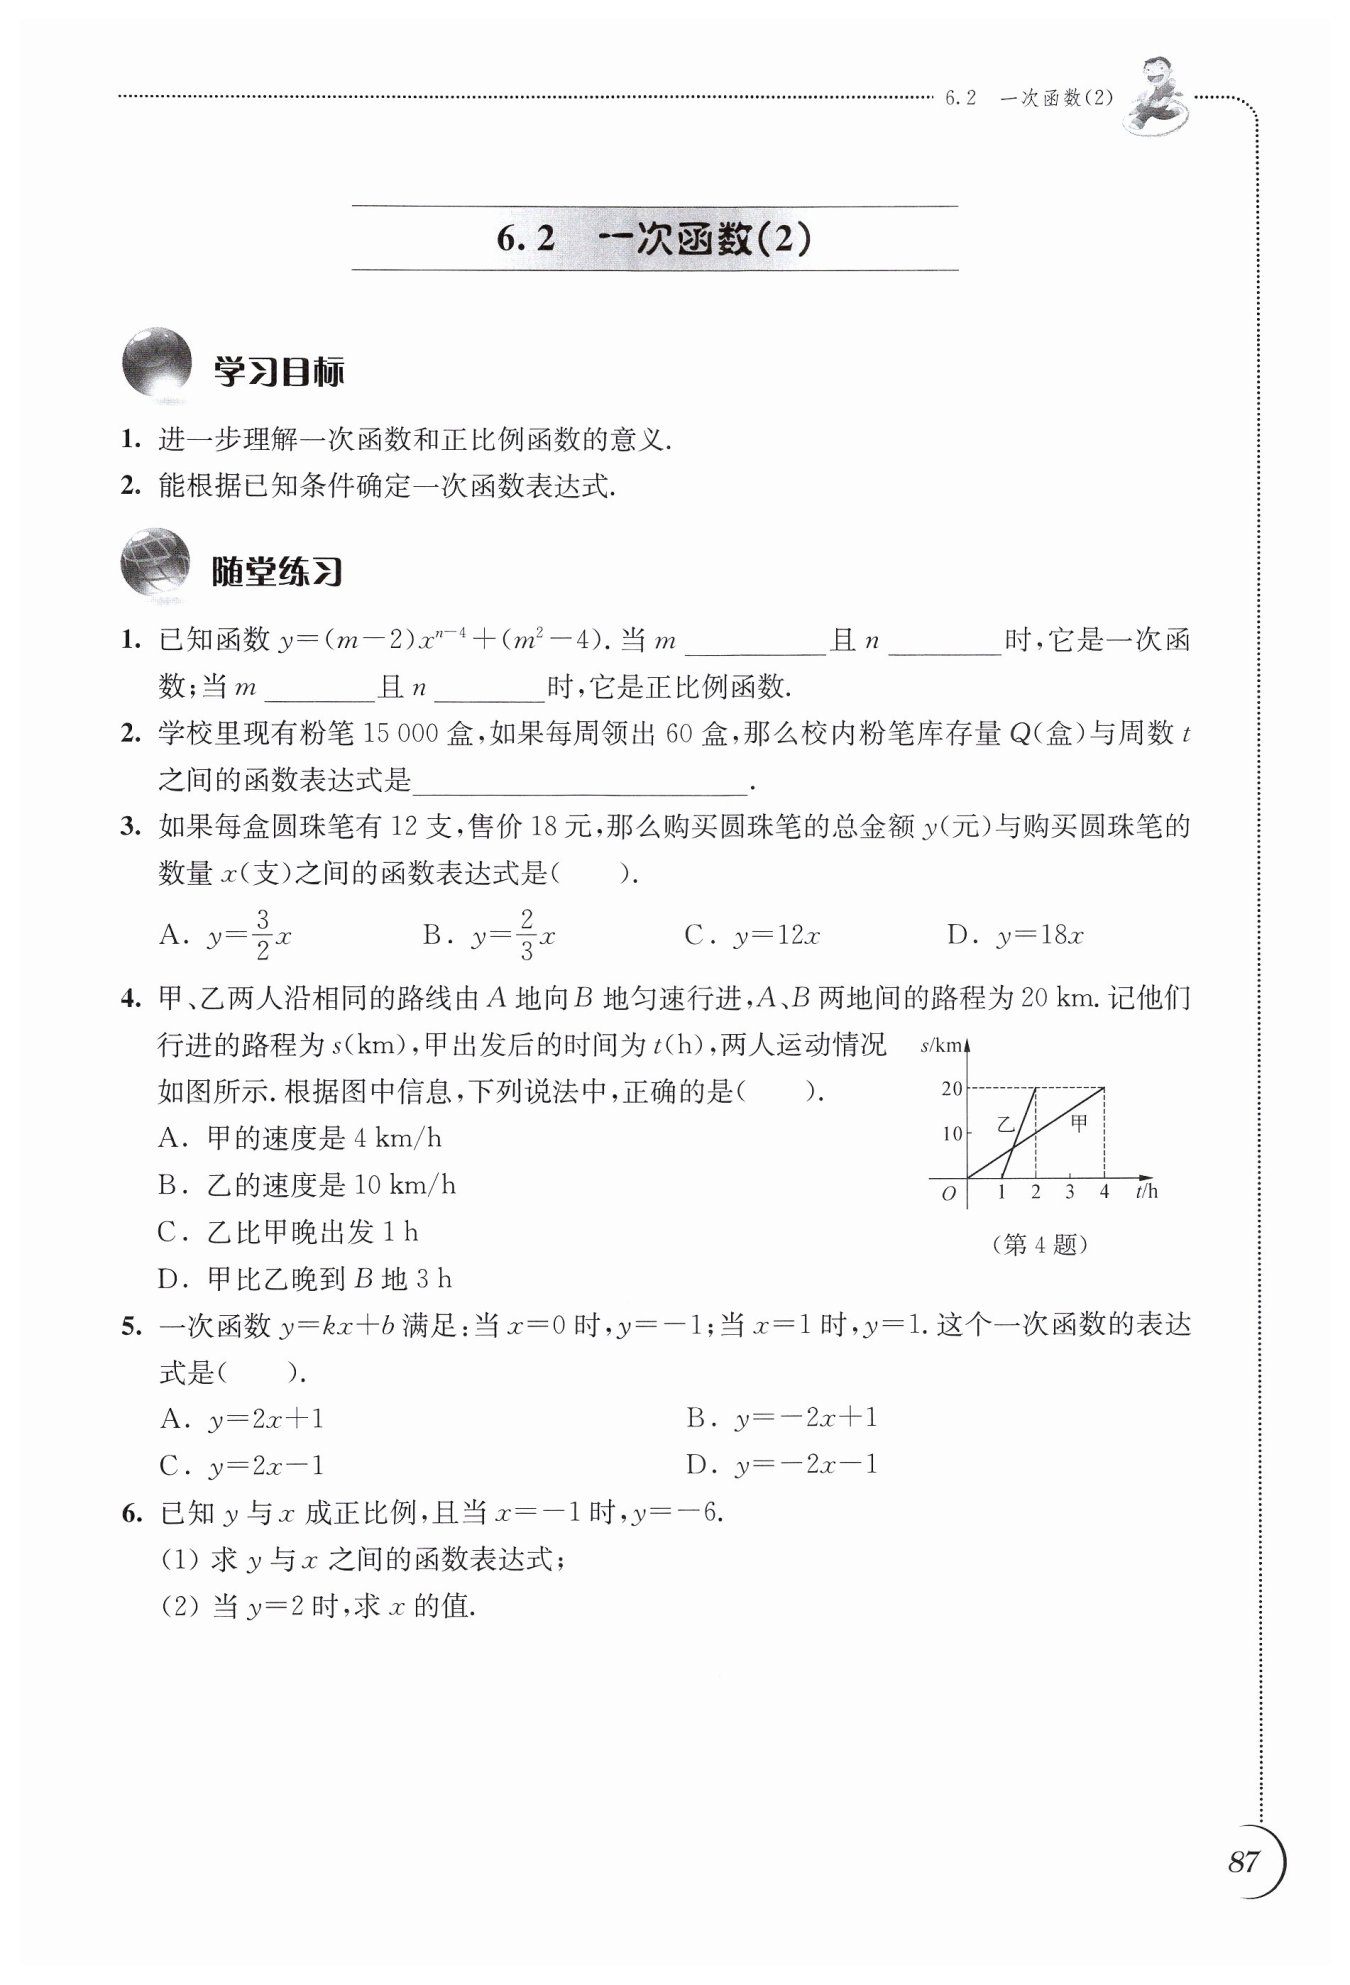 6.2 一次函数(2)
6.2 一次函数(2)
学习目标
1. 进一步理解一次函数和正比例函数的意义.
2. 能根据已知条件确定一次函数表达式.
随堂练习
1. 已知函数 y=(m-2)xⁿ⁻⁴+(m²-4). 当 m ________ 且 n ________ 时,它是一次函
数;当 m ________ 且 n ________ 时,它是正比例函数.
2. 学校里现有粉笔 15 000 盒,如果每周领出 60 盒,那么校内粉笔库存量 Q(盒)与周数 t
之间的函数表达式是________________.
3. 如果每盒圆珠笔有 12 支,售价 18 元,那么购买圆珠笔的总金额 y(元)与购买圆珠笔的
数量 x(支)之间的函数表达式是(　　).
A. y=3/2x B. y=2/3x C. y=12x D. y=18x
4. 甲、乙两人沿相同的路线由 A 地向 B 地匀速行进,A、B 两地间的路程为 20 km. 记他们
行进的路程为 s(km),甲出发后的时间为 t(h),两人运动情况
如图所示. 根据图中信息,下列说法中,正确的是(　　).
A. 甲的速度是 4 km/h
B. 乙的速度是 10 km/h
C. 乙比甲晚出发 1 h
D. 甲比乙晚到 B 地 3 h
s/km
20
乙 甲
10
O 1 2 3 4 t/h
(第 4 题)
5. 一次函数 y=kx+b 满足:当 x=0 时,y=-1;当 x=1 时,y=1. 这个一次函数的表达
式是(　　).
A. y=2x+1 B. y=-2x+1
C. y=2x-1 D. y=-2x-1
6. 已知 y 与 x 成正比例,且当 x=-1 时,y=-6.
(1) 求 y 与 x 之间的函数表达式;
(2) 当 y=2 时,求 x 的值.
87